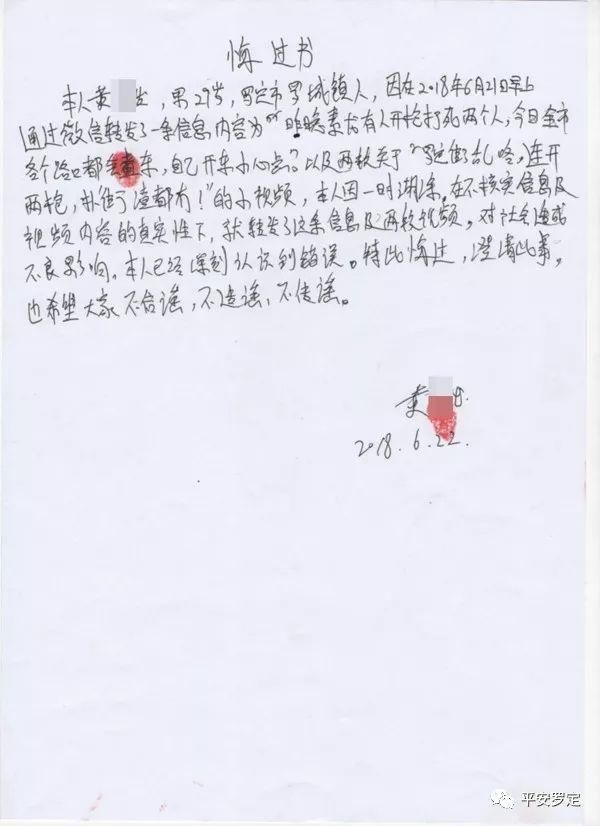 悔过书
本人黄 发，男29岁，罗定市罗城镇人，因在2018年6月21日早上
通过微信转发了一条信息内容为“昨晚素龙有人开枪打死两个人，今日全市
各个路口都查车，自己开车小心点。”以及两枚关于“罗定街乱咚，连开
两枪，扑街了渣都冇！”的小视频，本人因一时湖涂，在不核实信息及
视频内容的真实性下，就转发了这条信息及两枚视频。对社会造成
不良影响。本人已经深刻认识到错误。特此悔过，澄清此事，
也希望大家不信谣，不造谣，不传谣。
黄
2018.6.22.
平安罗定